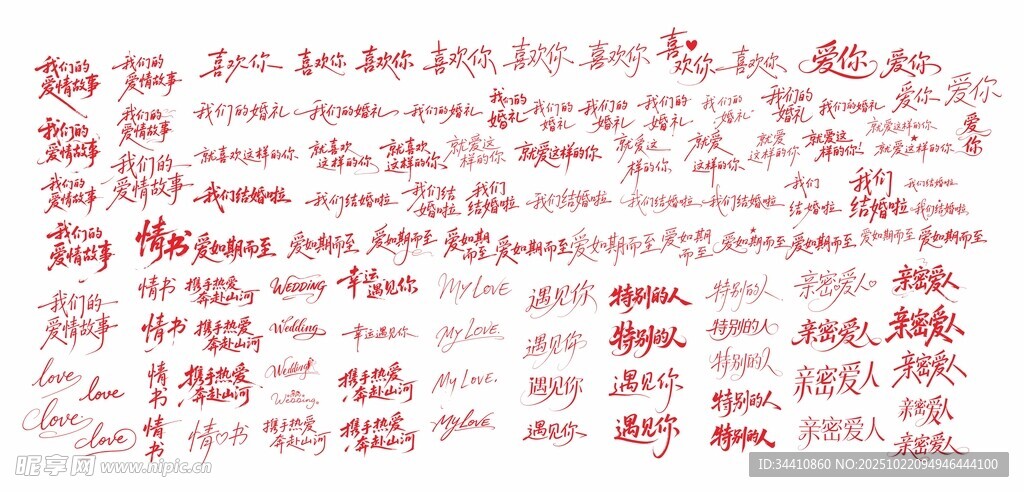 我们的
爱情故事
我们的
爱情故事
喜欢你
喜欢你
喜欢你
喜欢你
喜欢你
喜欢你
喜
欢你
喜欢你
爱你
爱你
我们的
爱情故事
我们的
爱情故事
我们的婚礼
我们的婚礼
我们的婚礼
我们的
婚礼
我们的
婚礼
我们的
婚礼
我们的
婚礼
我们的
婚礼
我们的
婚礼
我们的婚礼
爱你
爱你
我们的
爱情故事
就喜欢这样的你
就喜欢
这样的你
就喜欢
这样的你
就爱这
样的你
就爱这样的你
就爱这
样的你
就爱
这样的你
就爱
这样的你
就爱这
样的你!
就爱这样的你
就爱这样的你
爱
你
我们的
爱情故事
我们结婚啦
我们结婚啦
我们结
婚啦
我们
结婚啦
我们结婚啦
我们结婚啦
我们结婚啦
我们
结婚啦
我们
结婚啦
我们结婚啦
我们结婚啦
我们的
爱情故事
情书
爱如期而至
爱如期而至
爱如期
而至
爱如期
而至
爱如期而至
爱如期而至
爱如期
而至
爱如期而至
爱如期而至
爱如期而至
爱如期而至
我们的
爱情故事
情书
携手热爱
奔赴山河
WEDDING
幸运
遇见你
My LOVE
遇见你
特别的人
特别的人
亲密爱人
亲密爱人
情书
携手热爱
奔赴山河
Wedding
幸运遇见你
My LOVE.
遇见你
特别的人
特别的人
亲密爱人
亲密爱人
love
love
情
书
携手热爱
奔赴山河
Wedding
Wedding
携手热爱
奔赴山河
My Love.
遇见你
遇见你
特别的人
特别的人
亲密爱人
亲密爱人
love
love
情
书
情书
携手热爱
奔赴山河
携手热爱
奔赴山河
My LOVE
遇见你
遇见你
特别的人
亲密爱人
亲密爱人
亲密爱人
昵享网 www.nipic.cn
ID:34410860 NO:20251022094946444100